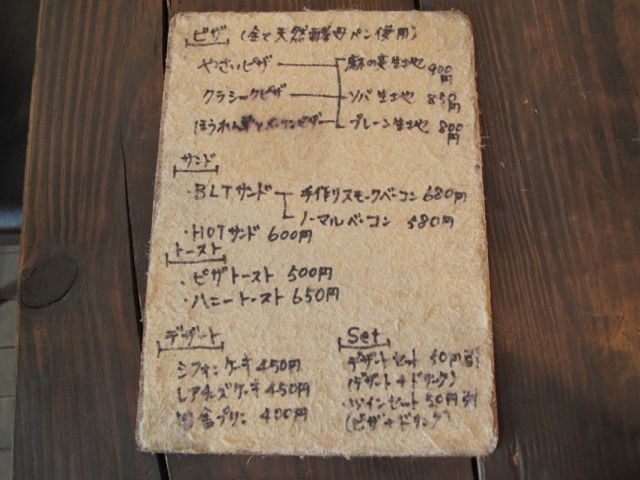 ピザ (全て天然酵母パン使用)
やさいピザ 麻の実生地 900円
クラシックピザ ソバ生地 850円
ほうれん草とベーコンピザ プレーン生地 800円
サンド
・BLTサンド 手作りスモークベーコン 680円
ノーマルベーコン 580円
・HOTサンド 600円
トースト
・ピザトースト 500円
・ハニートースト 650円
デザート
シフォンケーキ 450円
レアチーズケーキ 450円
田舎プリン 400円
Set
デザートセット 50円引
(デザート+ドリンク)
・ツインセット 50円引
(ピザ+ドリンク)